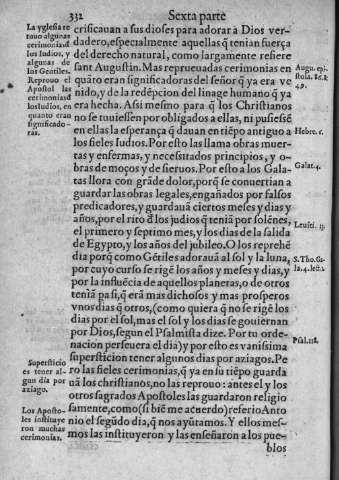 332
Sexta parte
La yglesia re
tuuo algunas
cerimonias d
los Iudios, y
algunas de
los Gentiles.
Reprouo el
Apostol las
cerimonias d
los Iudios, en
quanto eran
significado-
ras.
crificauan a sus dioses para adorar a Dios ver-
dadero, especialmente aquellas q̃ tenian fuerça
del derecho natural, como largamente refiere
sant Augustin. Mas reprueuadas cerimonias en
quãto eran significadoras del señor q̃ ya era ve
nido, y de la redẽpcion del linage humano q̃ ya
era hecha. Asi mesmo parã q̃ los Christianos
no se tuuiessen por obligados a ellas, ni pusiessẽ
en ellas la esperança q̃ dauan en tiẽpo antiguo a
los fieles Iudios. Por esto las llama obras muer-
tas y enfermas, y necesitados principios, y o-
bras de moços y de sieruos. Por esto a los Gala-
tas llora con grãde dolor, porq̃ se conuertian a
guardar las obras legales, engañados por falsos
predicadores, y guardauã ciertos meses y dias y
años, por el rito d̃ los judios q̃ teniã por solẽnes,
el primero y septimo mes, y los dias de la salida
de Egypto, y los años del jubileo. O los reprehẽ
dia porq̃ como Gẽtiles adorauã al sol y la luna,
por cuyo curso se rigẽ los años y meses y dias, y
por la influẽcia de aquellos planeras, o de otros
teniã pa si, q̃ erã mas dichosos y mas prosperos
vnos dias q̃ otros, (como quiera q̃ no se rigẽ los
dias por el sol, mas el sol y los dias se gouiernan
por Dios, segun el Psalmista dize. Por tu orde-
nacion perseuera el dia) y por esto es vanissima
supersticion tener algunos dias por aziagos. Pe
ro las fieles cerimonias, q̃ ya en su tiẽpo guarda
uã los christianos, no las reprouo: antes el y los
otros sagrados Apostoles las guardaron religio
samente, como (si biẽ me acuerdo) referio Anto
nio el segũdo dia, q̃ nos ayũtamos. Y ellos mes-
mos las instituyeron y las enseñaron a los pue-
blos
Augu. epi
stola. 82. &
49.
Hebre. 6.
Galat. 4.
Leuiti. 23
S. Tho. Ga
la. 4. lect. 2
Psal. 118.
Supersticio
es tener al-
gun dia por
aziago.
Los Aposto-
les instituye
ron muchas
cerimonias.